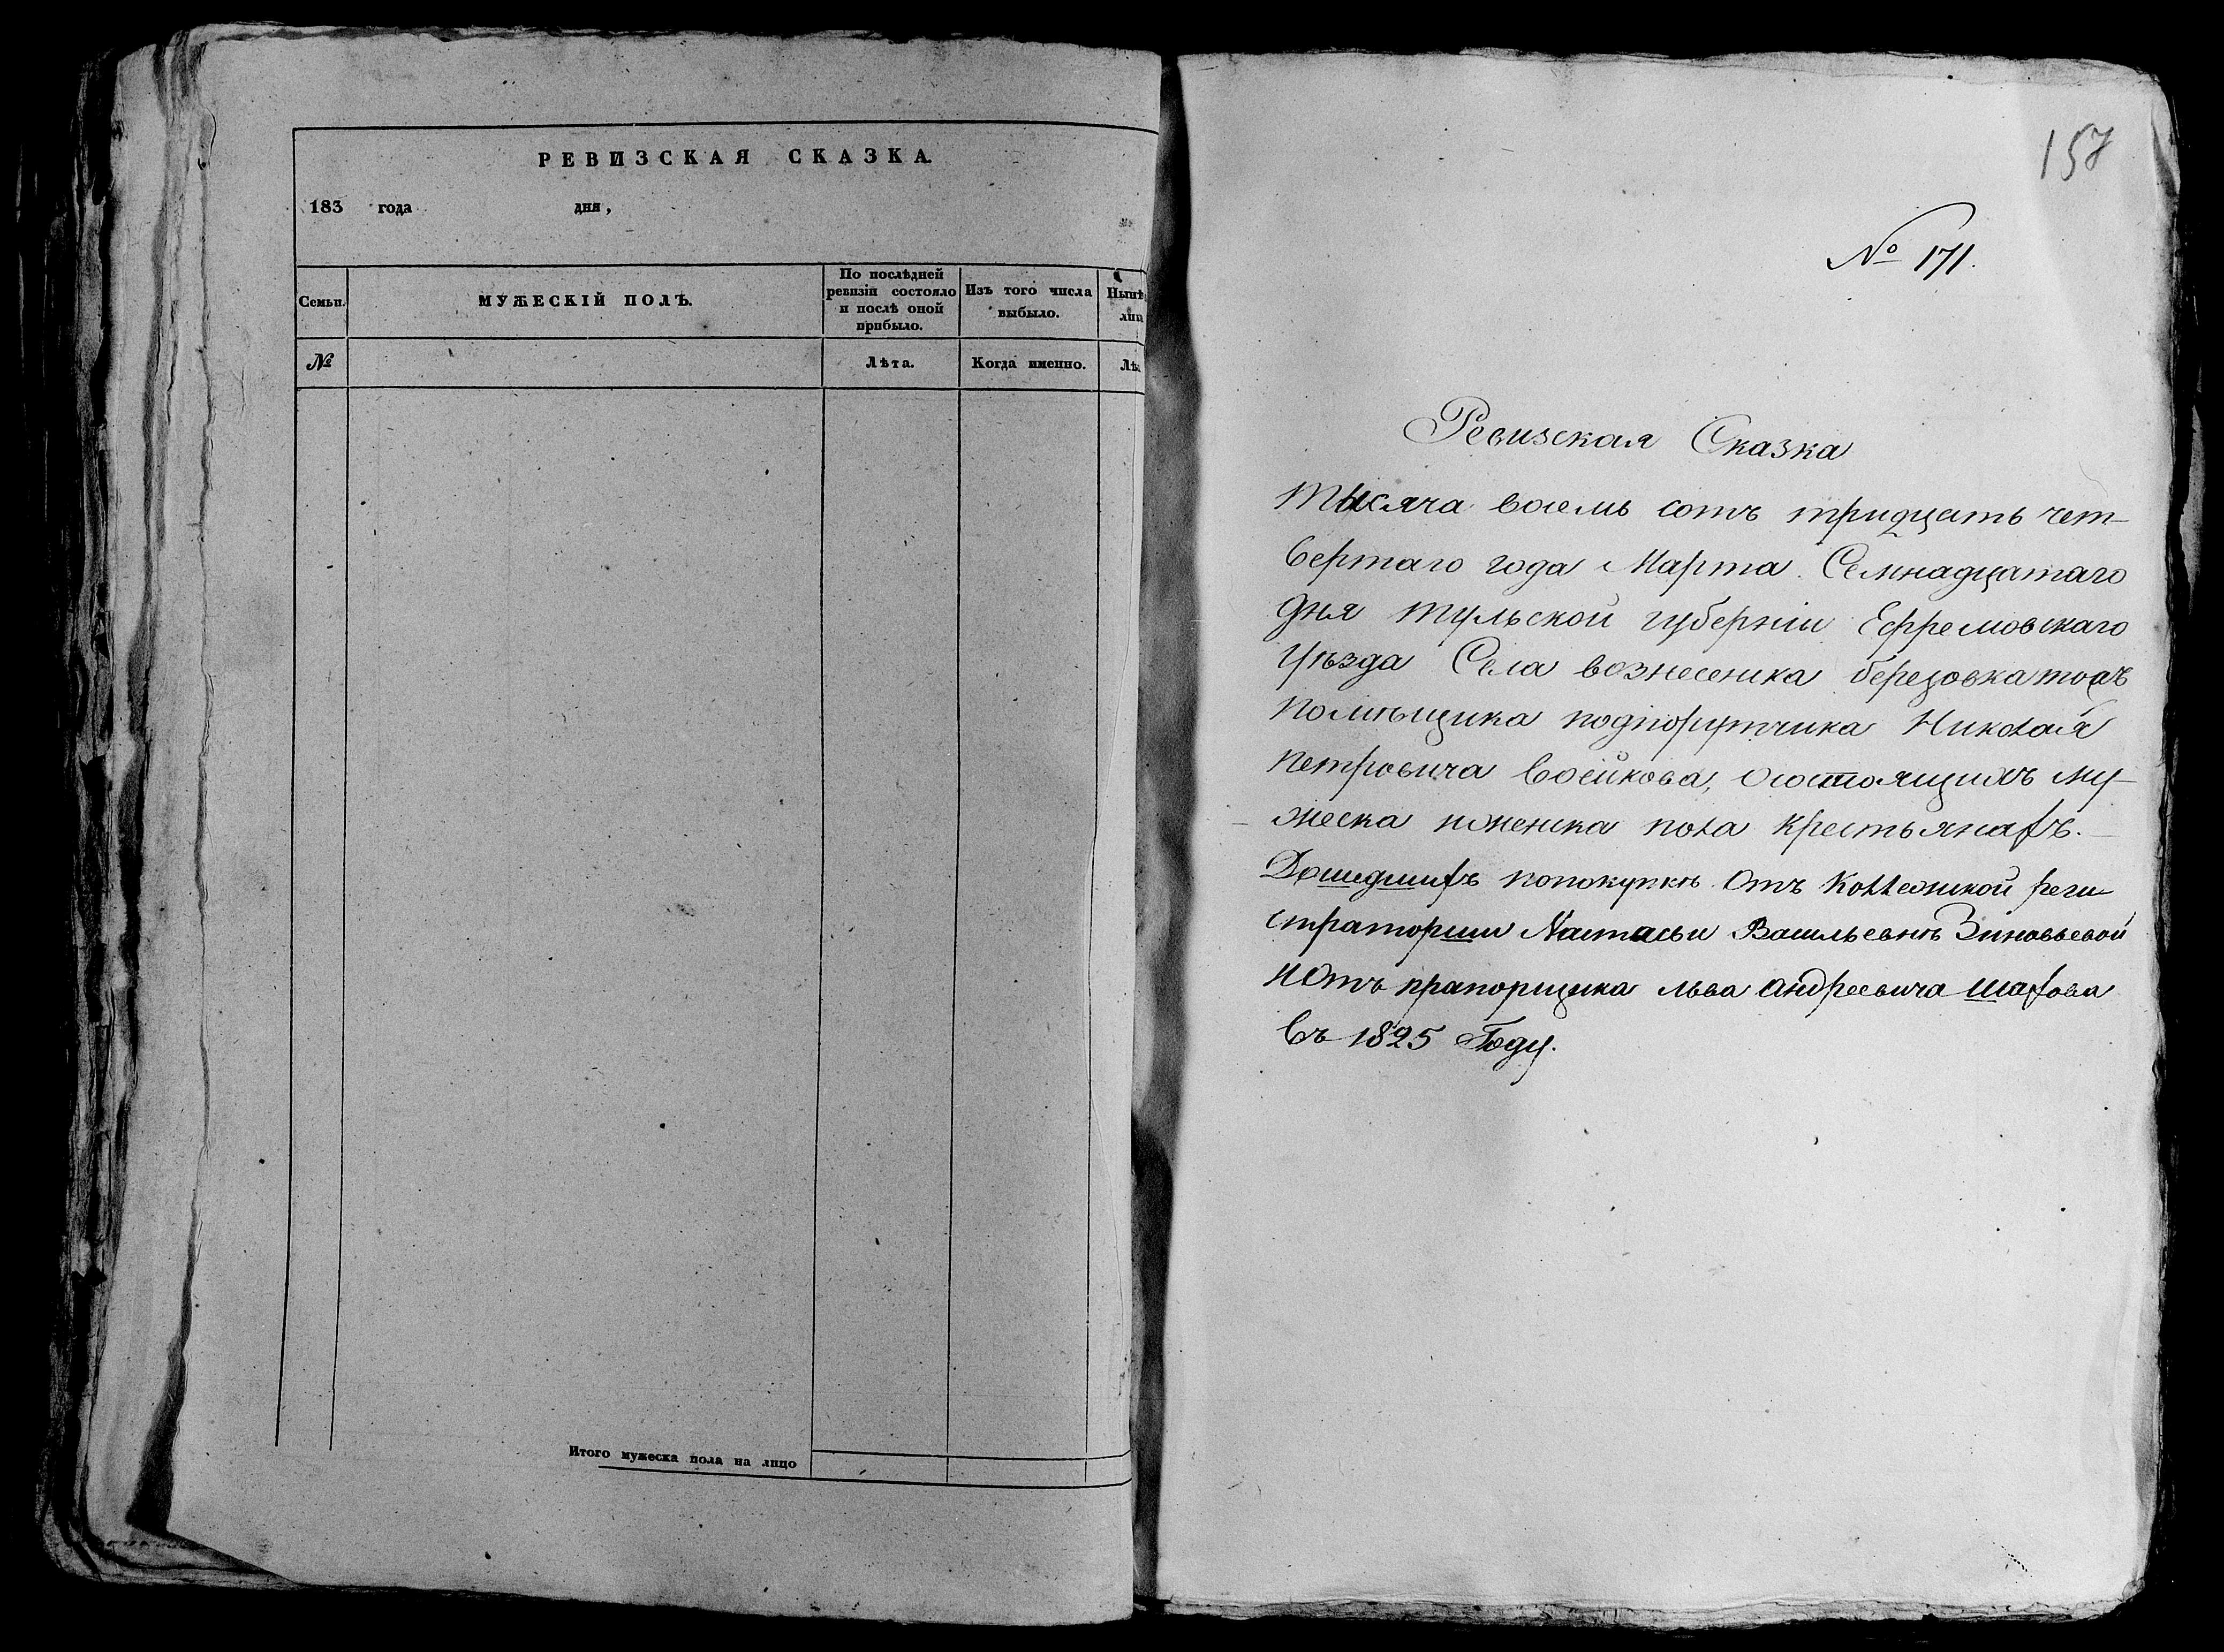 РЕВИЗСКАЯ СКАЗКА.
183 года дня,
Семьи.
МУЖЕСКІЙ ПОЛЪ.
По послѣдней
ревизіи состояло
и послѣ оной
прибыло.
Изъ того числа
выбыло.
№
Лѣта.
Когда именно.
Итого мужеска пола на лицо
157
№ 171.
Ревизская Сказка
тысяча восемь сотъ тридцать чет-
вертаго года Марта Семнадцатаго
дня тульской губерніи Ефремовскаго
уѣзда Села вознесенка березовка тожъ
помѣщика подпорутчика Николая
петровича воейкова, Осостоящихъ му-
жеска иженска пола крестьянахъ.
Дошедшихъ попокупкѣ Отъ Коллежской реги
страторши Настасьи Васильевнѣ Зиновьевой
иОтъ прапорщика льва андреевича шахова
въ 1825 Году.